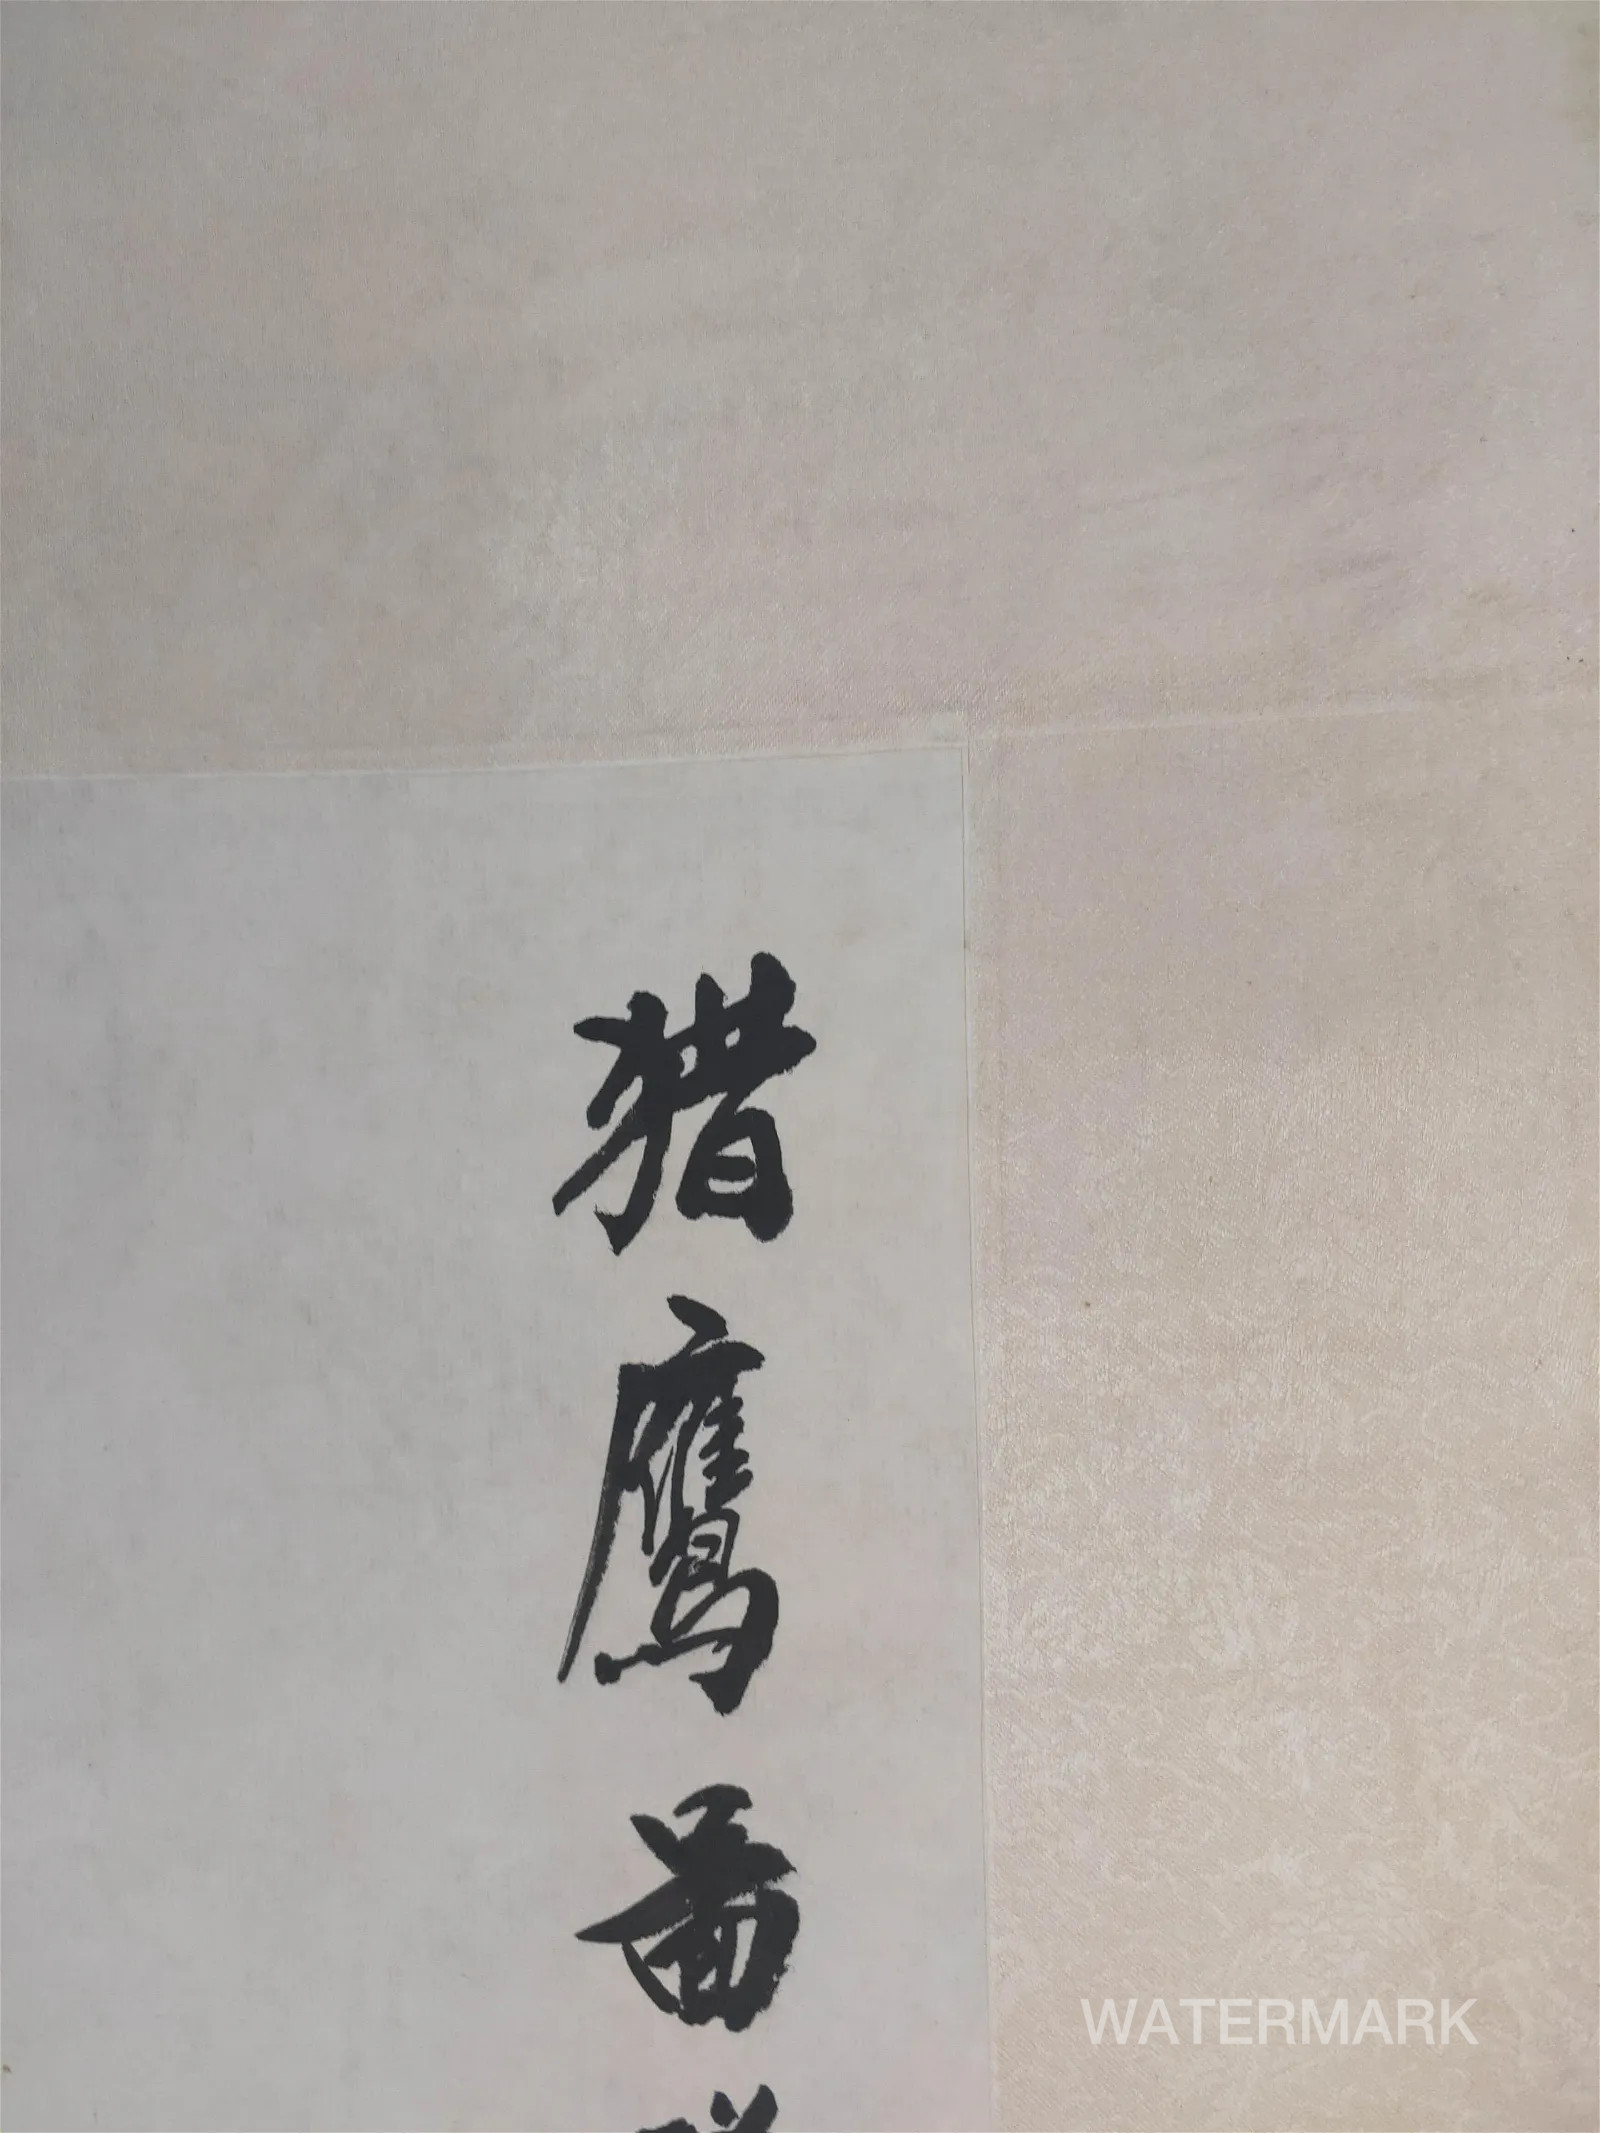 猎鹰图
WATERMARK